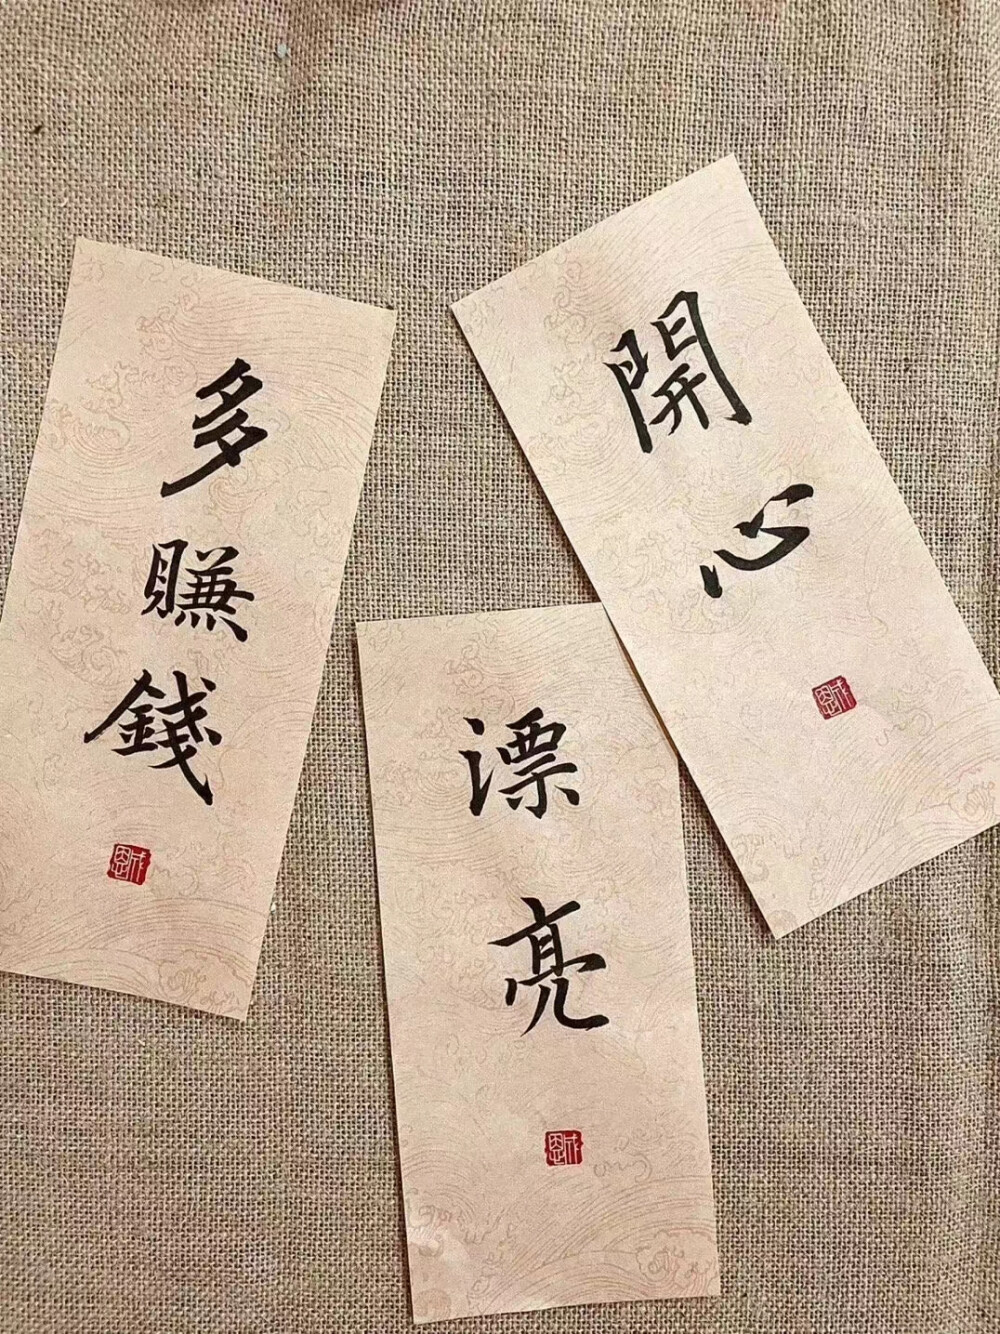 多賺錢
開心
漂亮